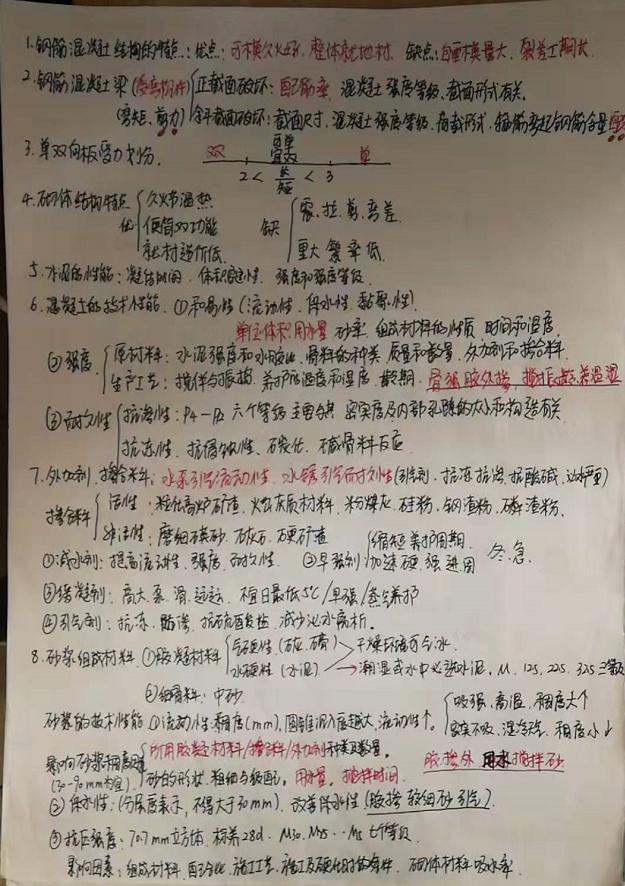 1.钢筋混凝土结构的特点:优点:可模久火好,整体就地材 缺点:自重模量大,裂差工期长
2.钢筋混凝土梁(受弯构件) 正截面破坏:配筋率 混凝土强度等级、截面形式有关.
(弯矩、剪力) 斜截面破坏:截面尺寸,混凝土强度等级,荷载形式,箍筋弯起钢筋含量
3.单双向板受力划分. 双 单
2< 长/短 <3
4.砌体结构特点 优 久火节温热 便简功能 就材造价低 缺 压、拉、剪、弯差 重大 繁 率低.
5.水泥的性能:凝结时间.体积安定性.强度和强度等级.
6.混凝土的技术性能.①和易性(流动性.保水性.黏聚性)
单位体积用水量 砂率.组成材料的性质 时间和温度.
②强度 原材料:水泥强度和水胶比,骨料的种类 质量和数量.外加剂和掺合料.
生产工艺:搅拌与振捣.养护的温度和湿度.龄期.
③耐久性 抗渗性: 六个等级 主要与其 密实度及内部孔隙的大小和构造有关
抗冻性.抗侵蚀性、碳化.碱骨料反应.
7.外加剂.掺合料:
掺合料 活性:粒化高炉矿渣.火山灰质材料.粉煤灰.硅粉.钢渣粉.磷渣粉.
非活性:磨细石英砂.石灰石.硬矿渣
①减水剂:提高流动性.强度.耐久性. ②早强剂 缩短养护周期 加速硬 强 进用 冬.急.
③缓凝剂:高大泵滑远 日最低5℃/早强/蒸气养护
④引气剂:抗冻.防渗.抗硫酸盐.减少泌水离析.
8.砂浆组成材料.①胶凝材料 气硬性(石灰.石膏)→干燥环境 水硬性(水泥)→潮湿或水中
②细骨料:中砂.
砂浆的技术性能 ①流动性:稠度(mm),圆锥沉入度越大,流动性↑. 吸强,高温,稠度大↑ 密实不吸,湿冷天气 稠度小↓
影响砂浆稠度因素 所用胶凝材料/掺合料/外加剂种类及数量.
(30-90mm为宜) 砂的形状.粗细与级配,用水量,搅拌时间. 胶掺外 用水搅拌砂
②保水性:(分层度表示,不得大于30mm).改善保水性(胶掺较细砂引气).
③抗压强度:70.7mm立方体.标养28d. 七个等级.
影响因素:组成材料.配合比.施工工艺.施工及硬化时的条件.砌体材料吸水率.